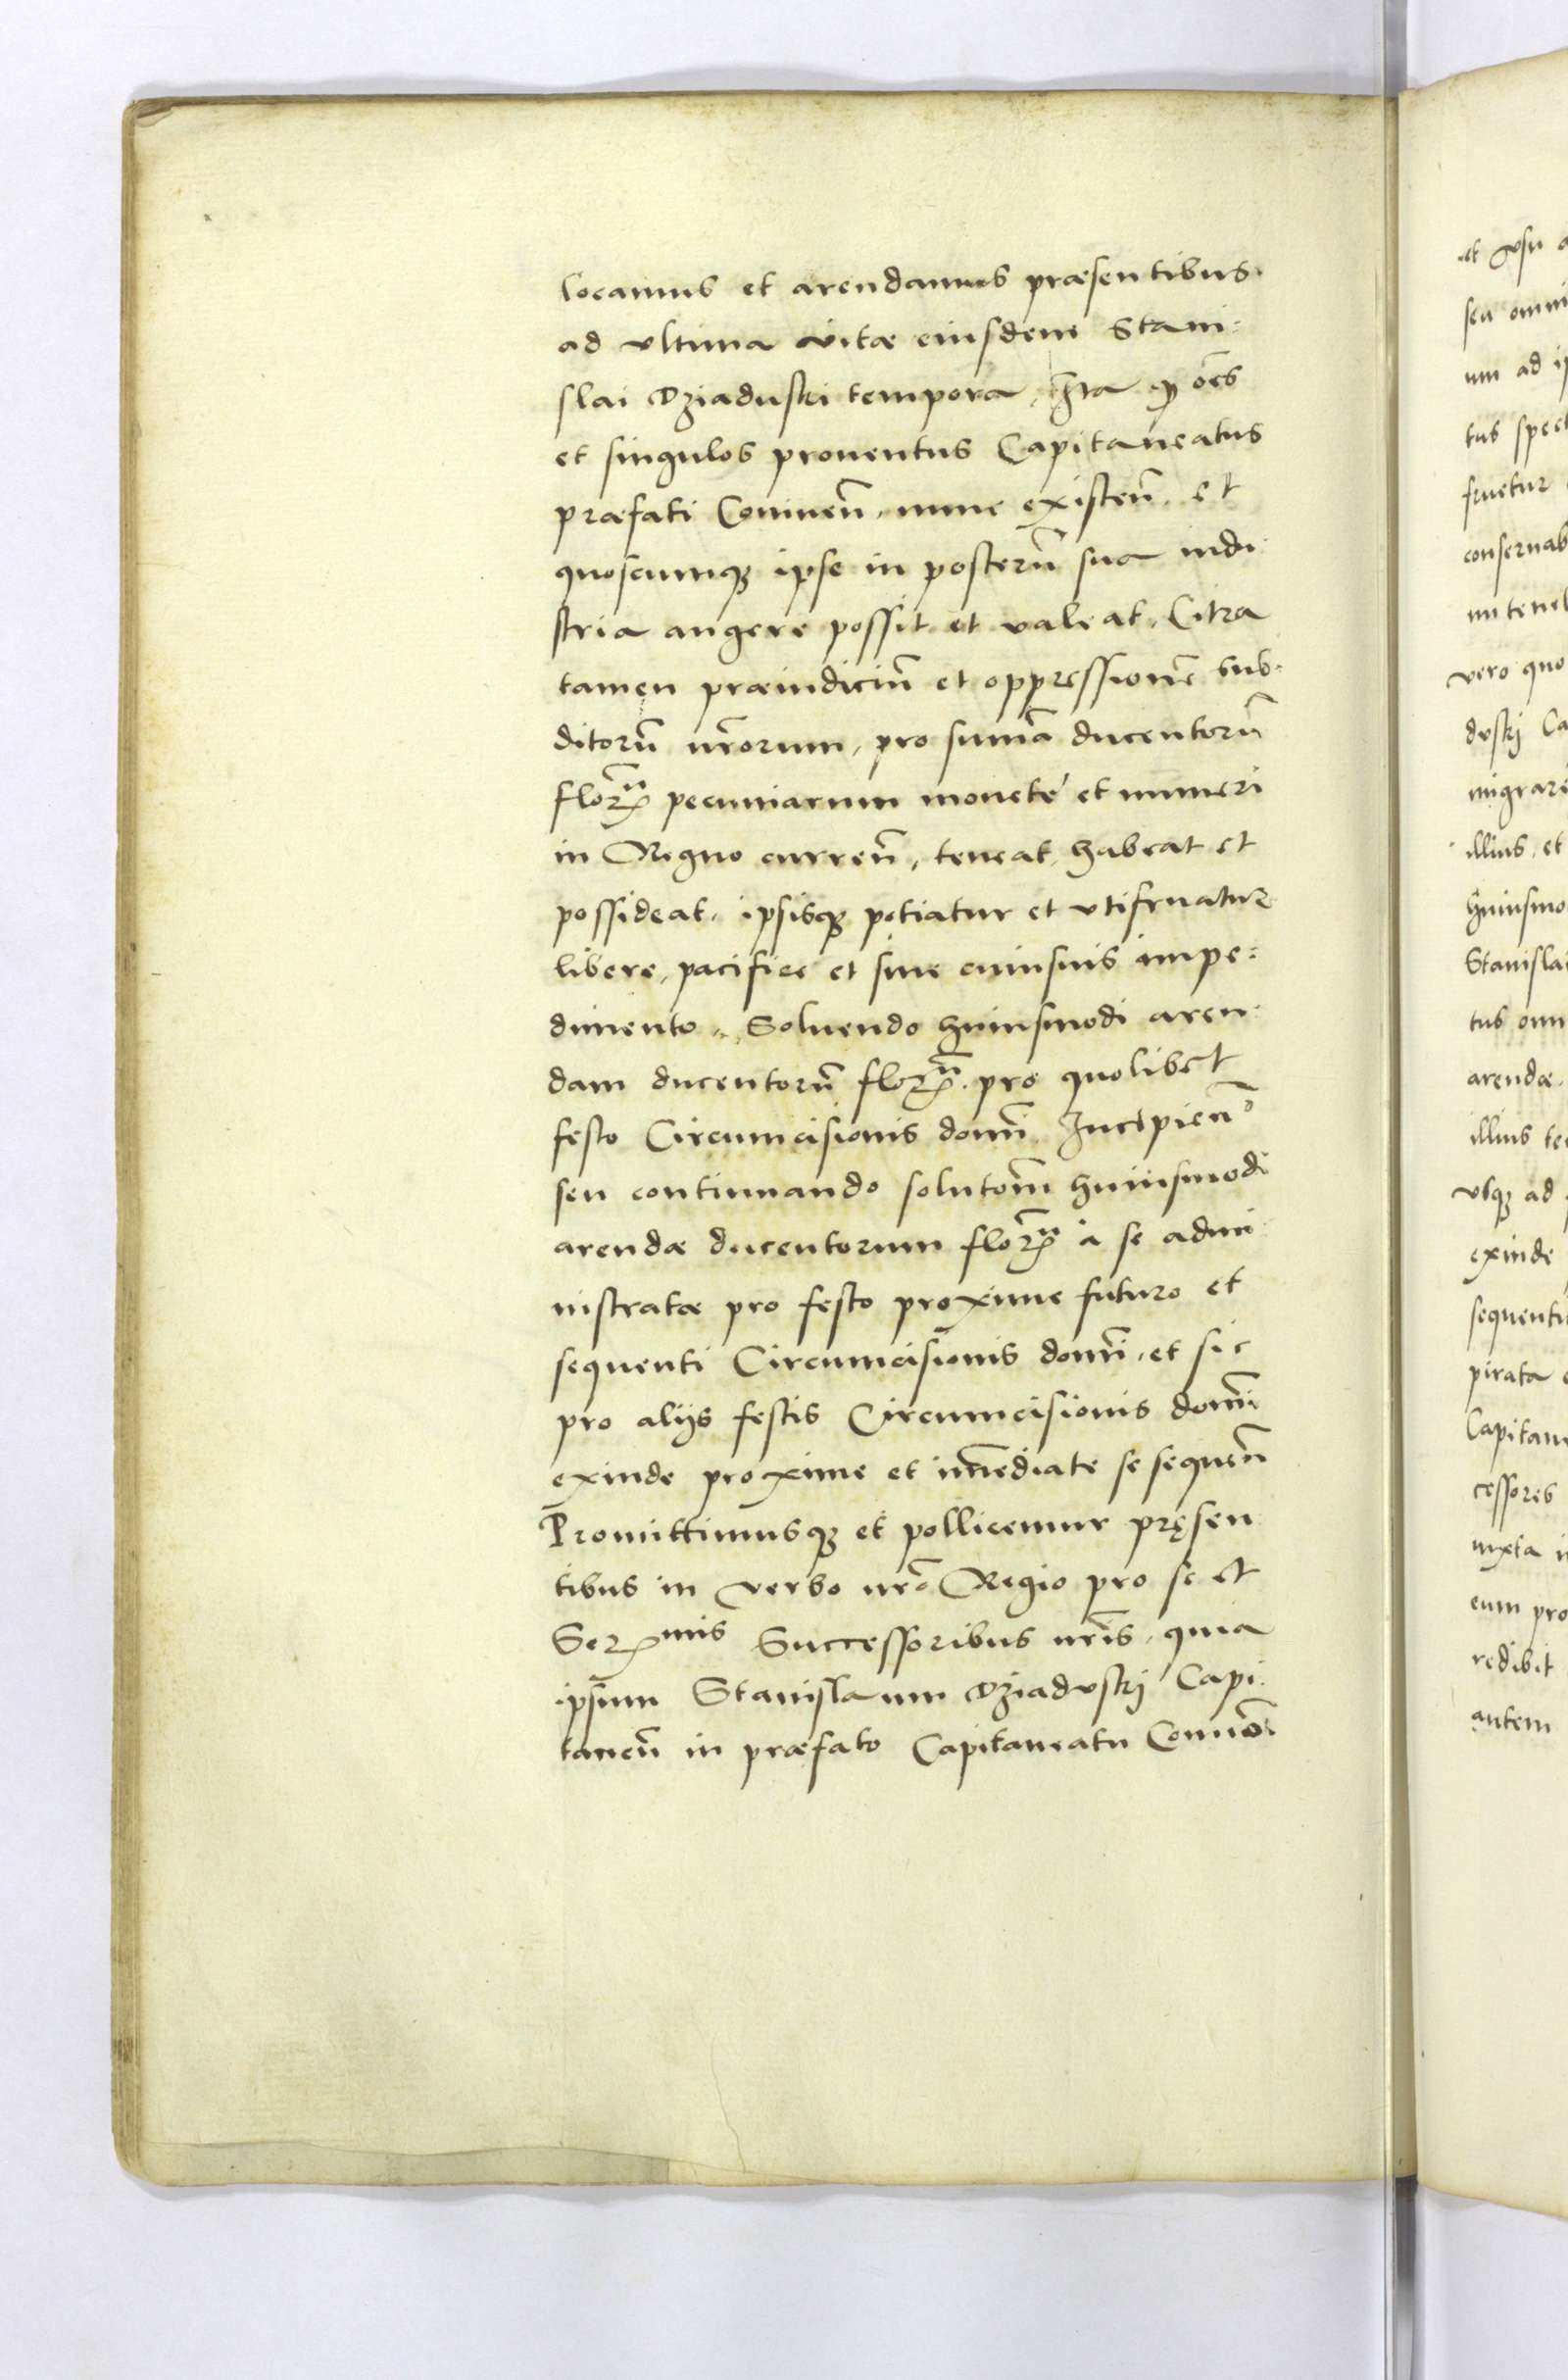 locamus et arendamus præsentibus.
ad vltima vitæ eiusdem Stani:
slai Dziaduski tempora, Ita q̃ oẽs
et singulos prouentus Capitaneatus
præfati Coninẽn. nunc existeñ. et
quoscumq; ipse in posterũ sua indu
stria augere possit et valeat, Citra
tamen præiudiciũ et oppressionẽ sub:
ditorũ nr̃orum, pro sum̃a ducentorũ
flor̃ pecuniarum moneté et numeri
in Regno curreñ, teneat, habeat et
possideat, ipsisq; potiatur et vtifruatur
libere, pacifice et sine cuiusuis impe:
dimento. Soluendo huiusmodi aren:
dam ducentorũ flor̃. pro quolibet
festo Circumcisionis domĩ Incipieñ
seu continuando solutom̃ huiusmodi
arendæ ducentorum flor̃ à se admi
nistratæ pro festo proxime futuro et
sequenti Circumcisionis domĩ, et sic
pro alijs festis Circumcisionis domĩ
exinde proxime et im̃ediate se sequeñ
Promittimusq; et pollicemur pręsen
tibus in verbo nr̃o Regio pro se et
Ser mis Successoribus nr̃is, quia
ipsum Stanislaum Dziaduskj Capi:
taneũ in præfato Capitaneatu
et vsu
seu omni
um ad
tus spect
fruetur
conseruab
ni teneb
vero quo
duskj Ca
migrare
illius, et
huiusmo
Stanislai
tus omn
arendæ.
illius te
vsq; ad
exinde
sequenti
pirata
Capitane
cessores
iuxta
eum pro
redibit
autem